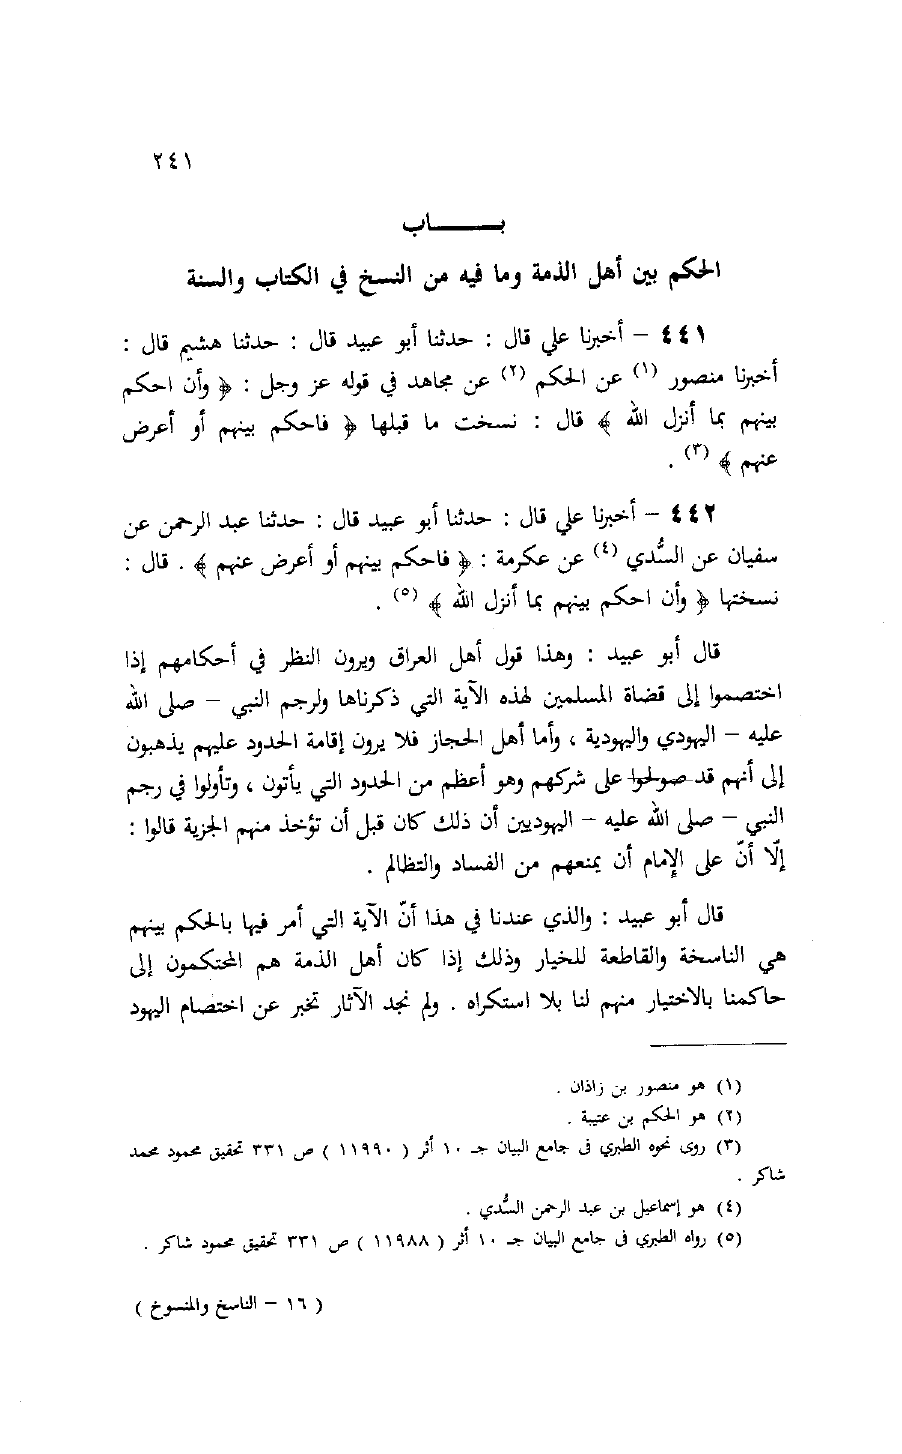 ٢٤١
بـــــاب
الحكم بين أهل الذمة وما فيه من النسخ في الكتاب والسنة
٤٤١ – أخبرنا علي قال : حدثنا أبو عبيد قال : حدثنا هشيم قال :
أخبرنا منصور (١) عن الحكم (٢) عن مجاهد في قوله عز وجل : ﴿ وأن احكم
بينهم بما أنزل الله ﴾ قال : نسخت ما قبلها ﴿ فاحكم بينهم أو أعرض
عنهم ﴾ (٣) .
٤٤٢ – أخبرنا علي قال : حدثنا أبو عبيد قال : حدثنا عبد الرحمن عن
سفيان عن السُّدي (٤) عن عكرمة : ﴿ فاحكم بينهم أو أعرض عنهم ﴾ . قال :
نسختها ﴿ وأن احكم بينهم بما أنزل الله ﴾ (٥) .
قال أبو عبيد : وهذا قول أهل العراق ويرون النظر في أحكامهم إذا
اختصموا إلى قضاة المسلمين لهذه الآية التي ذكرناها ولرجم النبي – صلى الله
عليه – اليهودي واليهودية ، وأما أهل الحجاز فلا يرون إقامة الحدود عليهم يذهبون
إلى أنهم قد صولحوا على شركهم وهو أعظم من الحدود التي يأتون ، وتأولوا في رجم
النبي – صلى الله عليه – اليهوديين أن ذلك كان قبل أن تؤخذ منهم الجزية قالوا :
إلّا أنّ على الإمام أن يمنعهم من الفساد والتظالم .
قال أبو عبيد : والذي عندنا في هذا أنّ الآية التي أمر فيها بالحكم بينهم
هي الناسخة والقاطعة للخيار وذلك إذا كان أهل الذمة هم المحتكمون إلى
حاكمنا بالاختيار منهم لنا بلا استكراه . ولم نجد الآثار تخبر عن اختصام اليهود
(١) هو منصور بن زاذان .
(٢) هو الحكم بن عتيبة .
(٣) روى نحوه الطبري فى جامع البيان جـ ١٠ أثر ( ١١٩٩٠ ) ص ٣٣١ تحقيق محمود محمد
شاكر .
(٤) هو إسماعيل بن عبد الرحمن السُّدي .
(٥) رواه الطبري فى جامع البيان جـ ١٠ أثر ( ١١٩٨٨ ) ص ٣٣١ تحقيق محمود شاكر .
( ١٦ – الناسخ والمنسوخ )